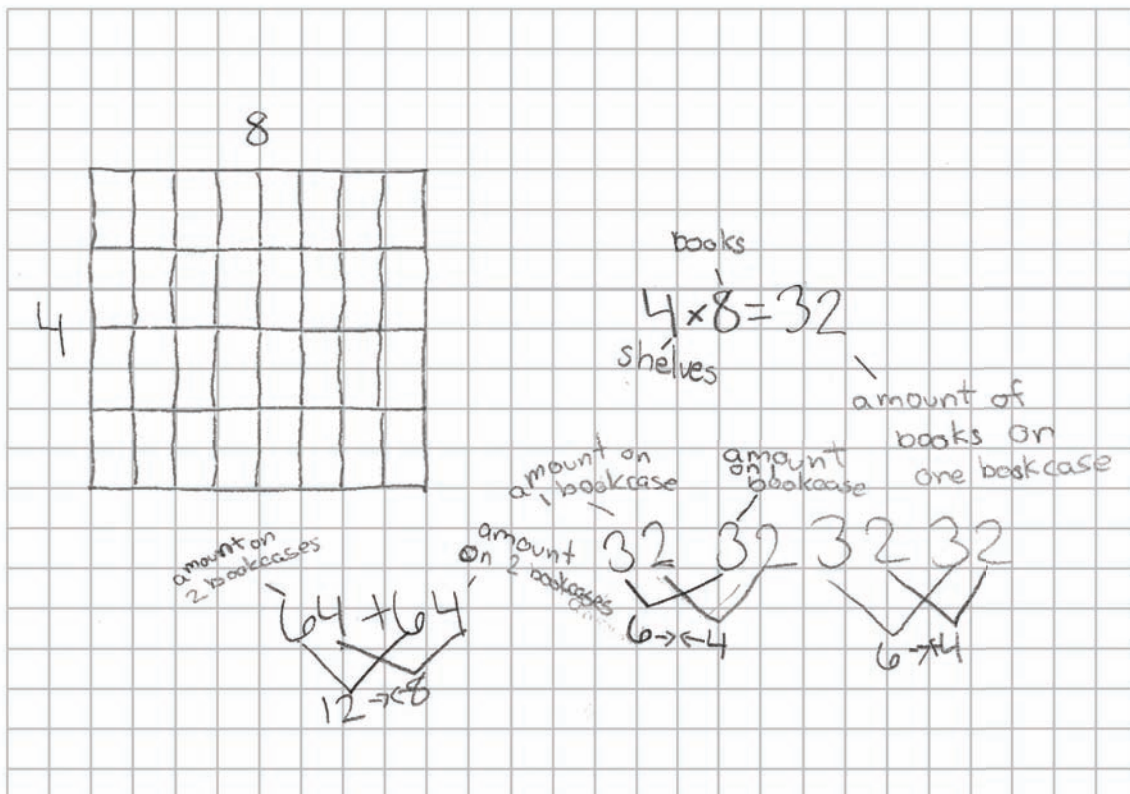 8
4
books
4 × 8 = 32
shelves
amount of
books on
one bookcase
amount on
a bookcase
amount
on
bookcase
32 32 32 32
6→←4
6→←4
amount on
2 bookcases
amount
on 2 bookcases
64 + 64
12→←8